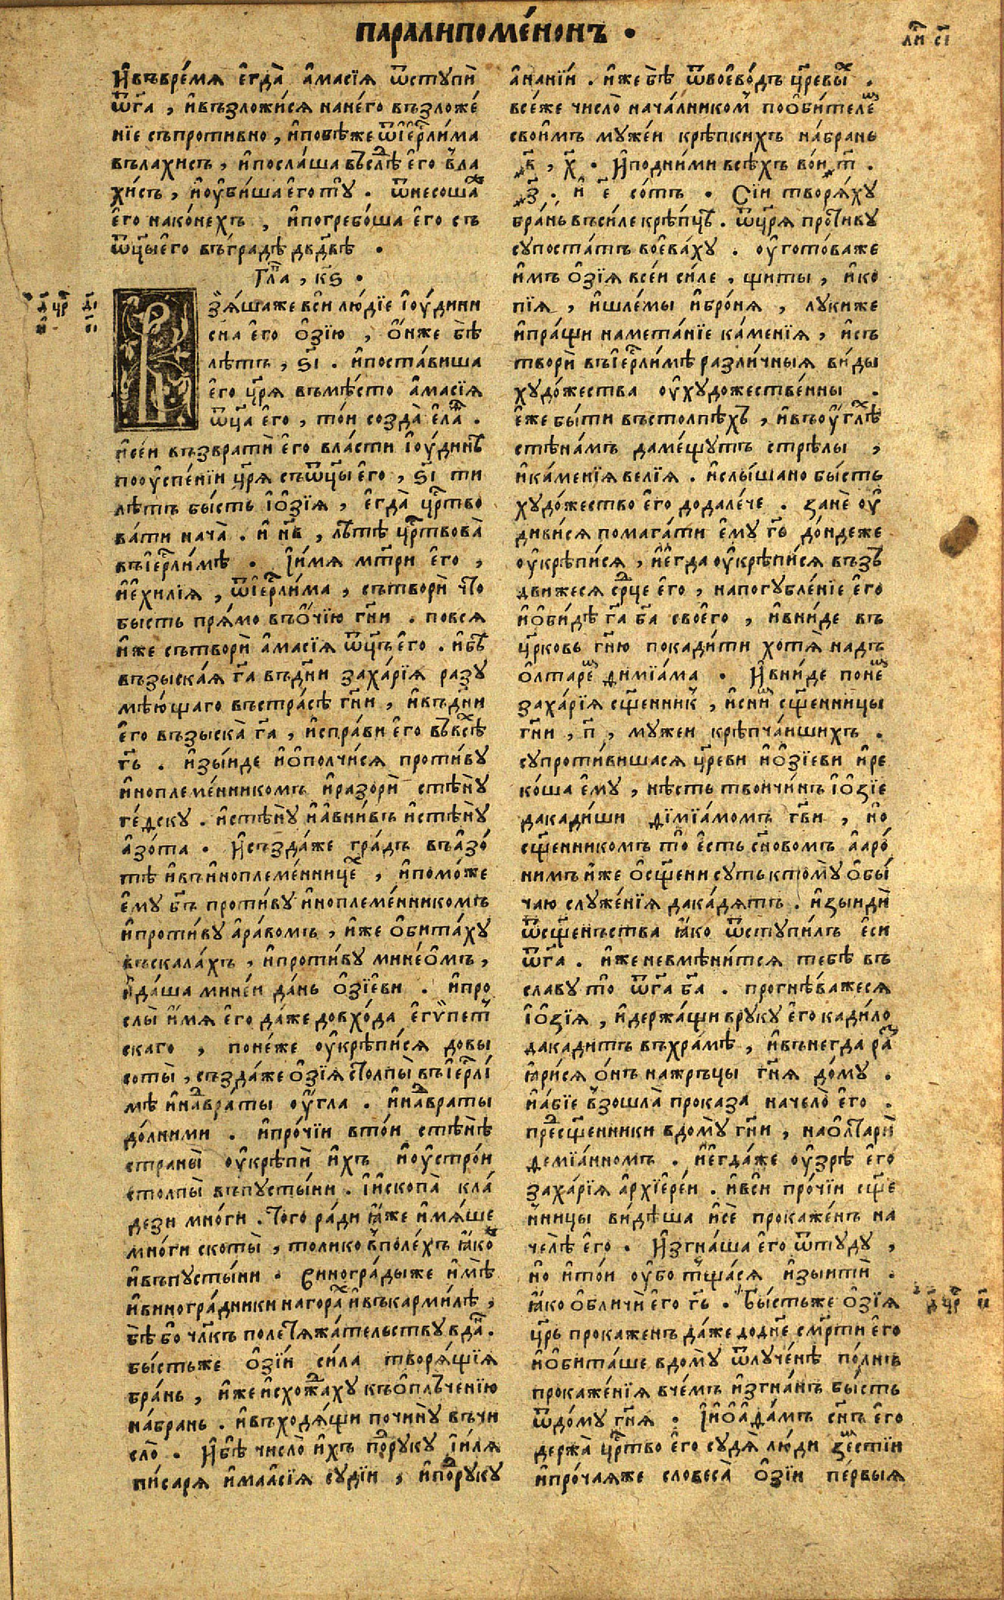 паралипоме́нонъ ·
лн҃ сі҃
И҆ въвре́мя е҆гда̀ а҆масі́я ѿступѝ
ѿг҃а , и҆ възложи́ся нане́го възложе́
нїе съпроти́вно , и҆ побѣ́же ѿї҆ерⷭ҇ли́ма
въ лахи́съ , и҆ посла́ша въслѣⷣ е҆го̀ въ ла
хи́съ , и҆ оу҆би́ша е҆го̀ тꙋ̀ . ѿнесо́шаⷤ
е҆го̀ нако́нехъ , и҆ погребо́ша е҆го̀ съ
ѿц҃ы е҆го̀ въ гра́дѣ дв҃двѣ ·
Гла҃ , к҃ѕ ·
д҃ црⷭ҇ д҃і
взя́шаже вси̑ лю́дїе і҆оу́дини
сн҃а е҆го̀ ѻ҆зі́ю , ѻ҆́нже бѣ̀
лѣ́тъ , ѕ҃і . и҆ поста́виша
е҆го̀ цр҃я̀ въмѣ́сто а҆масі́я
ѿц҃а е҆го̀ , то́и созда̀ е҆лаⷴ .
и҆ се́и възвратѝ е҆го̀ вла́сти і҆оу́динѣ
по оу҆спе́нїи цр҃я̀ съѿц҃ы е҆го̀ , ѕ҃і ти
лѣ́тъ бы́сть і҆ѻзі́я , е҆гда̀ црⷭ҇тво
ва́ти нача̀ . и҆ н҃в , лѣ́тѣ црⷭ҇твова̀
въ і҆ерⷭ҇ли́мѣ · І҆́мя мт҃ри е҆го̀ ,
и҆е҆хилі́я , ѿї҆ерⷭ҇ли́ма , сътворѝ то
бы́сть пря́мо въѻ҆́чїю гн҃и . по вся
и҆́же сътворѝ а҆масі́я ѿц҃ъ е҆го̀ . и҆ бѣ
възыска́я г҃а въ дн҃и заха́рїя разꙋ
мѣ́ющаго въ стра́сѣ гн҃и , и҆ въ дн҃и
е҆го̀ възыска̀ г҃а , и҆ спра́ви е҆го̀ въ всеⷨ
г҃ь . и҆ зы́иде и҆ ѻ҆полчи́ся проти́вꙋ
и҆ноплеме́нникомъ и҆ разорѝ стѣ́нꙋ
ге́дскꙋ . и҆ стѣ́нꙋ и҆а҆вни́въ и҆ стѣ́нꙋ
а҆зо́та · И҆ създа́же гра́дъ въ а҆зо́
тѣ и҆ въ и҆ноплеме́нницеⷯ , и҆ помо́же
е҆мꙋ̀ б҃ъ проти́вꙋ и҆ноплеме́нникомъ
и҆ проти́вꙋ а҆ра́вомъ , и҆́же ѻ҆бита́хꙋ
въ скала́хъ , и҆ проти́вꙋ мине́ѻмъ ,
и҆ да́ша мине́и да́нь ѻ҆зі́еви . и҆ про
слы̀ и҆́мя е҆го̀ да́же до вхо́да е҆гѵ́петⷭ
скаго , поне́же оу҆крѣпи́ся до вы
соты̀ , създа́же ѻ҆зі́я столпы̀ въ і҆ерⷭ҇ли́
мѣ и҆ на́дврата оу҆́гла . и҆ на́двраты
до́лними . и҆ про́чїи вто́и стѣ́нѣ
страны̀ оу҆крѣпѝ и҆́хъ и҆ оу҆стро́и
столпы̀ въ пꙋсты́ни . і҆ и҆скопа̀ кла́
дези мно́ги . Того̀ ра́ди ꙗ҆́же и҆мя́ше
мно́ги скоты̀ , толи́ко въ поле́хъ ꙗ҆́коⷤ
и҆ въ пꙋсты́ни · Виногра́дыже и҆мѣ̀
и҆ виногра́дники на гораⷯ и҆ въ карми́лѣ ,
бѣ̀ бо чл҃къ полетяжа́тельствꙋ вда́н .
бы́стьже ѻ҆зі́и си́ла творя́щїя
бра́нь , и҆́же и҆схожа́хꙋ къ ѻ҆плꙋче́нїю
на́брань . и҆ въходя́щи почи́нꙋ въ чи
сло̀ · И҆ бѣ̀ число̀ и҆́хъ подрꙋ́кꙋ і҆и́ля
писаря̀ и҆ маа҆сі́я сꙋдїи̑ , и҆ подрꙋ́кꙋ
а҆на́нїи . и҆́же бѣ̀ ѿвоево́дъ цр҃евыⷯ .
все́же число̀ нача́лникомъ по ѻ҆бителеⷨ
свои́мъ мꙋже́и крѣ́пкихъ на́брань
҂в҃ , х҃ · И҆ под ни́ми всѣ́хъ во́и т҃ .
҂з҃ . и҆ е҃ со́тъ · Сїи̑ творя́хꙋ
бра́нь въ си́ле крѣ́пцѣ . ѿцр҃я̀ проти́вꙋ
сꙋпоста́тъ воева́хꙋ . оу҆гото́важе
и҆́мъ ѻ҆зі́я все́и си́ле , щиты̀ , и҆ ко
пїя̀ , и҆ шле́мы и҆ броня̀ , лꙋкиже
и҆ пра́щи на мета́нїе ка́менїя , и҆ съ
творѝ въ і҆ерⷭ҇ли́мѣ разли́чныя ви́ды
хꙋдо́жества оу҆хꙋдо́жественны .
е҆́же бы́ти въ столпѣ́хъ , и҆ въ оу҆́глѣⷯ
стѣ́намъ да ме́щꙋтъ стрѣ́лы ,
и҆ ка́менїя ве́лїя . и҆ слы́шано бы́сть
хꙋдо́жество е҆го̀ дода́лече . занѐ оу҆
диви́ся помага́ти е҆мꙋ̀ г҃ь до́ндеже
оу҆крѣпи́ся , и҆ е҆гда оу҆крѣпи́ся възъ
дви́жеся срⷣце е҆го̀ , на погꙋбле́нїе е҆го̀
и҆ ѻ҆би́дѣ г҃а б҃а своего̀ , и҆ вни́де въ
цр҃ковь гн҃ю покади́ти хотя̀ надъ
ѻ҆лтаре́мъ ѳимїа́ма · И҆ вни́де по не́мъ
заха́рїя сщ҃е́нник , и҆ с ни́м сщ҃е́нницы
гн҃и , п҃ , мꙋже́и крѣпча́ишихъ .
сꙋпроти́вишася цр҃еви и҆ ѻ҆зі́еви и҆ ре
ко́ша е҆мꙋ̀ , нѣ́сть тво́и чи́нъ і҆ѻзі́е
да кади́ши ѳимїа́момъ гв҃и , но
сщ҃е́нникомъ то̀ е҆сть сн҃ово́мъ а҆аро́
нимъ и҆́же ѻ҆сщ҃ени сꙋ́ть к томꙋ̀ ѻ҆бы́
чаю слꙋже́нїя да кадя́тъ . и҆ зы́иди
ѿсщ҃е́нъства ꙗ҆́ко ѿстꙋпи́лъ е҆си
ѿг҃а . и҆́же не вмѣни́тся тебѣ̀ въ
сла́вꙋ то̀ ѿг҃а б҃а . прогнѣ́важеся
і҆ѻзі́я , и҆ держа́щи в рꙋкꙋ̀ е҆го̀ кади́ло
да кади́тъ въ хра́мѣ , и҆ вънегда̀ раⷥ
ꙗ҆ри́ся ѻ҆́нъ на жръцы̀ гн҃я до́мꙋ .
и҆ а҆́бїе взошла̀ прока́за на чело̀ е҆го̀ .
преⷣсщ҃е́нники в до́мꙋ гн҃и , на ѻ҆лтарѝ
ѳемїа́нномъ . и҆ е҆гда́же оу҆зрѣ̀ е҆го̀
заха́рїя а҆рхїере́и . и҆ вси̑ про́чїи сщ҃е́
нницы ви́дѣша и҆ сѐ прокаже́нъ на
челѣ̀ е҆го̀ . И҆згна́ша е҆го̀ ѿтꙋ́дꙋ ,
но и҆ то́и оу҆́бо тща́ся и҆зы́итѝ .
ꙗ҆́ко ѻ҆бличѝ е҆го̀ г҃ь . Бы́стьже ѻ҆зі́я
д҃ црⷭ҇
цр҃ь прокаже́нъ да́же до днѐ см҃рти е҆го̀
и҆ ѻ҆бита́ше в до́мꙋ ѿлꙋче́нѣ по́лнъ
прокаже́нїя в че́мъ и҆згна́нъ бы́сть
ѿдо́мꙋ гн҃я · І҆ и҆ѻада́мъ сн҃ъ е҆го̀
держа̀ црⷭ҇тво е҆го̀ сꙋдя̀ лю́ди земⷭ҇тїи
и҆ про́чаяже словеса̀ ѻ҆зі́и пе́рвыя